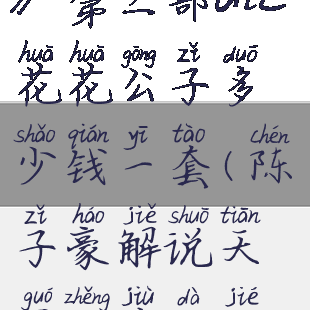 第二部
huā huā gōng zǐ duō
花花公子多
shǎo qián yī tào chén
少钱一套(陈
zǐ háo jiě shuō tiān
子豪解说天
guó zhěng jiù dà jié